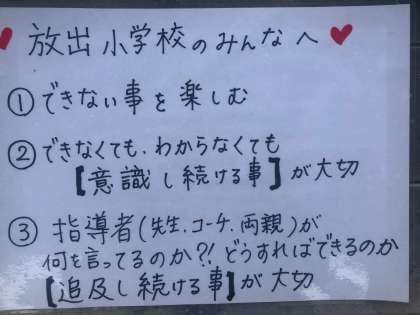 ♥放出小学校のみんなへ♥
①できない事を楽しむ
②できなくても、わからなくても
【意識し続ける事】が大切
③指導者(先生、コーチ、両親)が
何を言ってるのか?!どうすればできるのか
【追及し続ける事】が大切